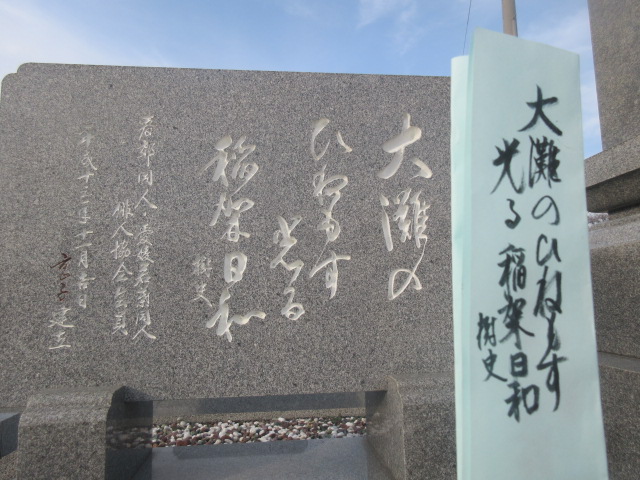 大灘の
ひねもす
光る
稲架日和
樹史
若葉同人・愛媛若葉同人
俳人協会会員
平成十二年十一月吉日
建立
大灘のひねもす
光る稲架日和
樹史